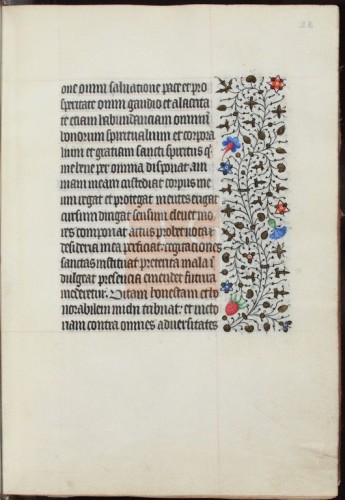 28
one omni saluatione pace et pro
speritate omni gaudio et alacrita
te etiam habundanciam omniū
bonorum spiritualium et corpora
lium et gratiam sancti spiritus q̄
me bene per omnia disponat ani
mam meam custodiat corpus me
um regat et protegat mentes erigat
cursum dirigat sensum
res componat actus probet uota et
desideria mea perficiat cogitationes
sanctas instituat preterita mala ī
dulgeat presencia emendet futura
moderetur. Uitam honestam et ho
norabilem michi tribuat: et victo
riam contra omnes aduersitates